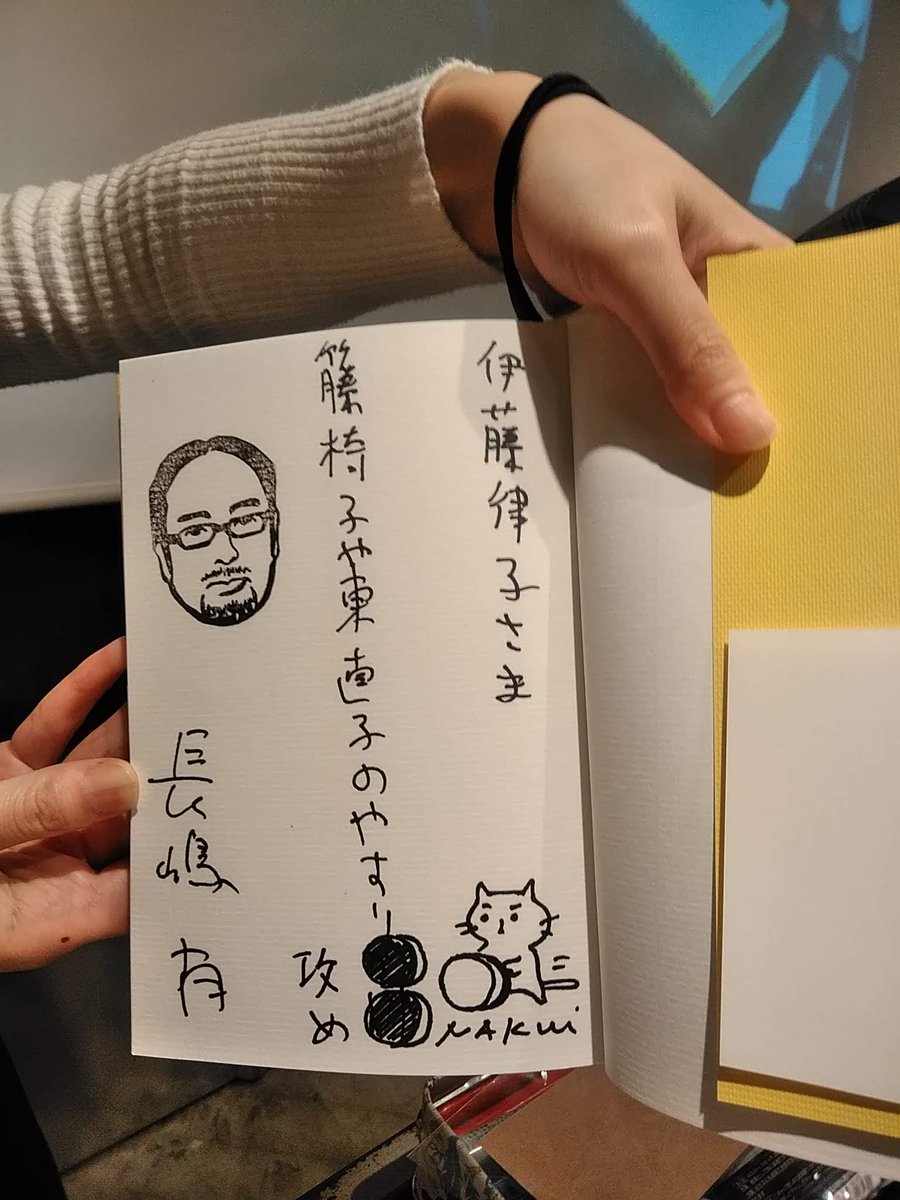 伊藤律子さま
籐椅子や東直子のやすり
攻め
長嶋有